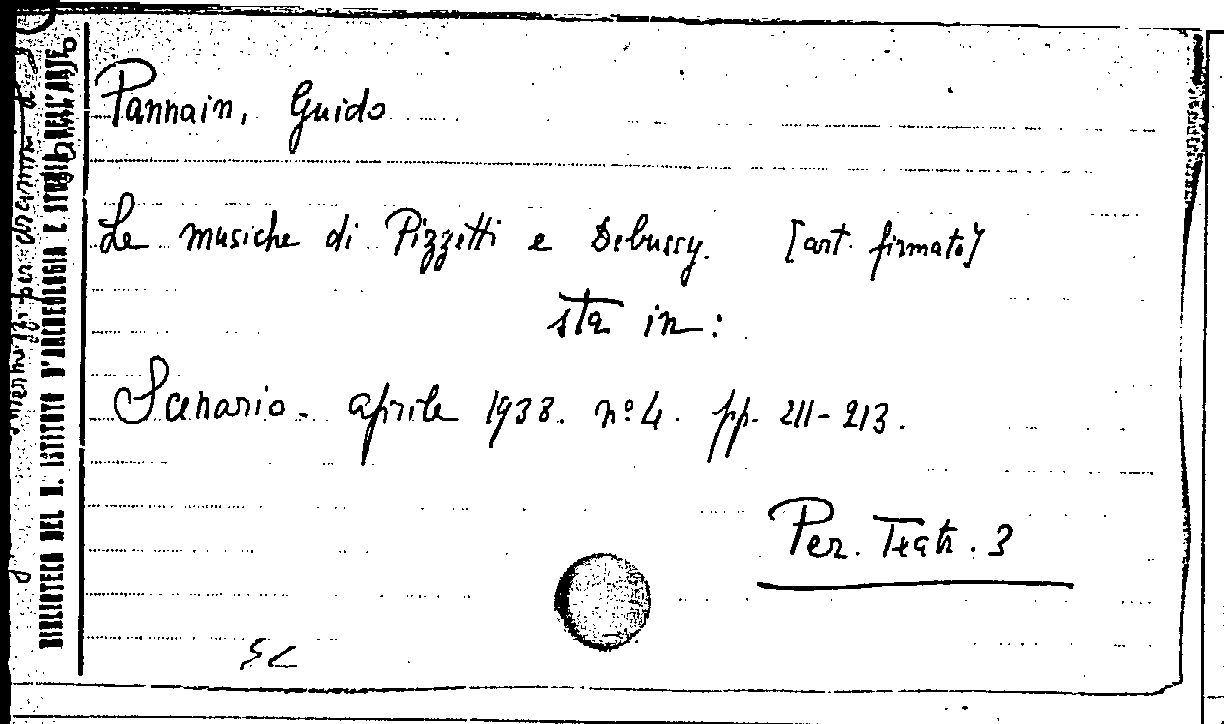 Pannain, Guido
Le musiche di Pizzetti e Debussy. [art. firmato]
sta in:
Scenario. aprile 1938. nº 4. pp. 211-213.
Per. Teatr. 3
BIBLIOTECA DEL R. ISTITUTO D'ARCHEOLOGIA E STORIA DELL'ARTE
per